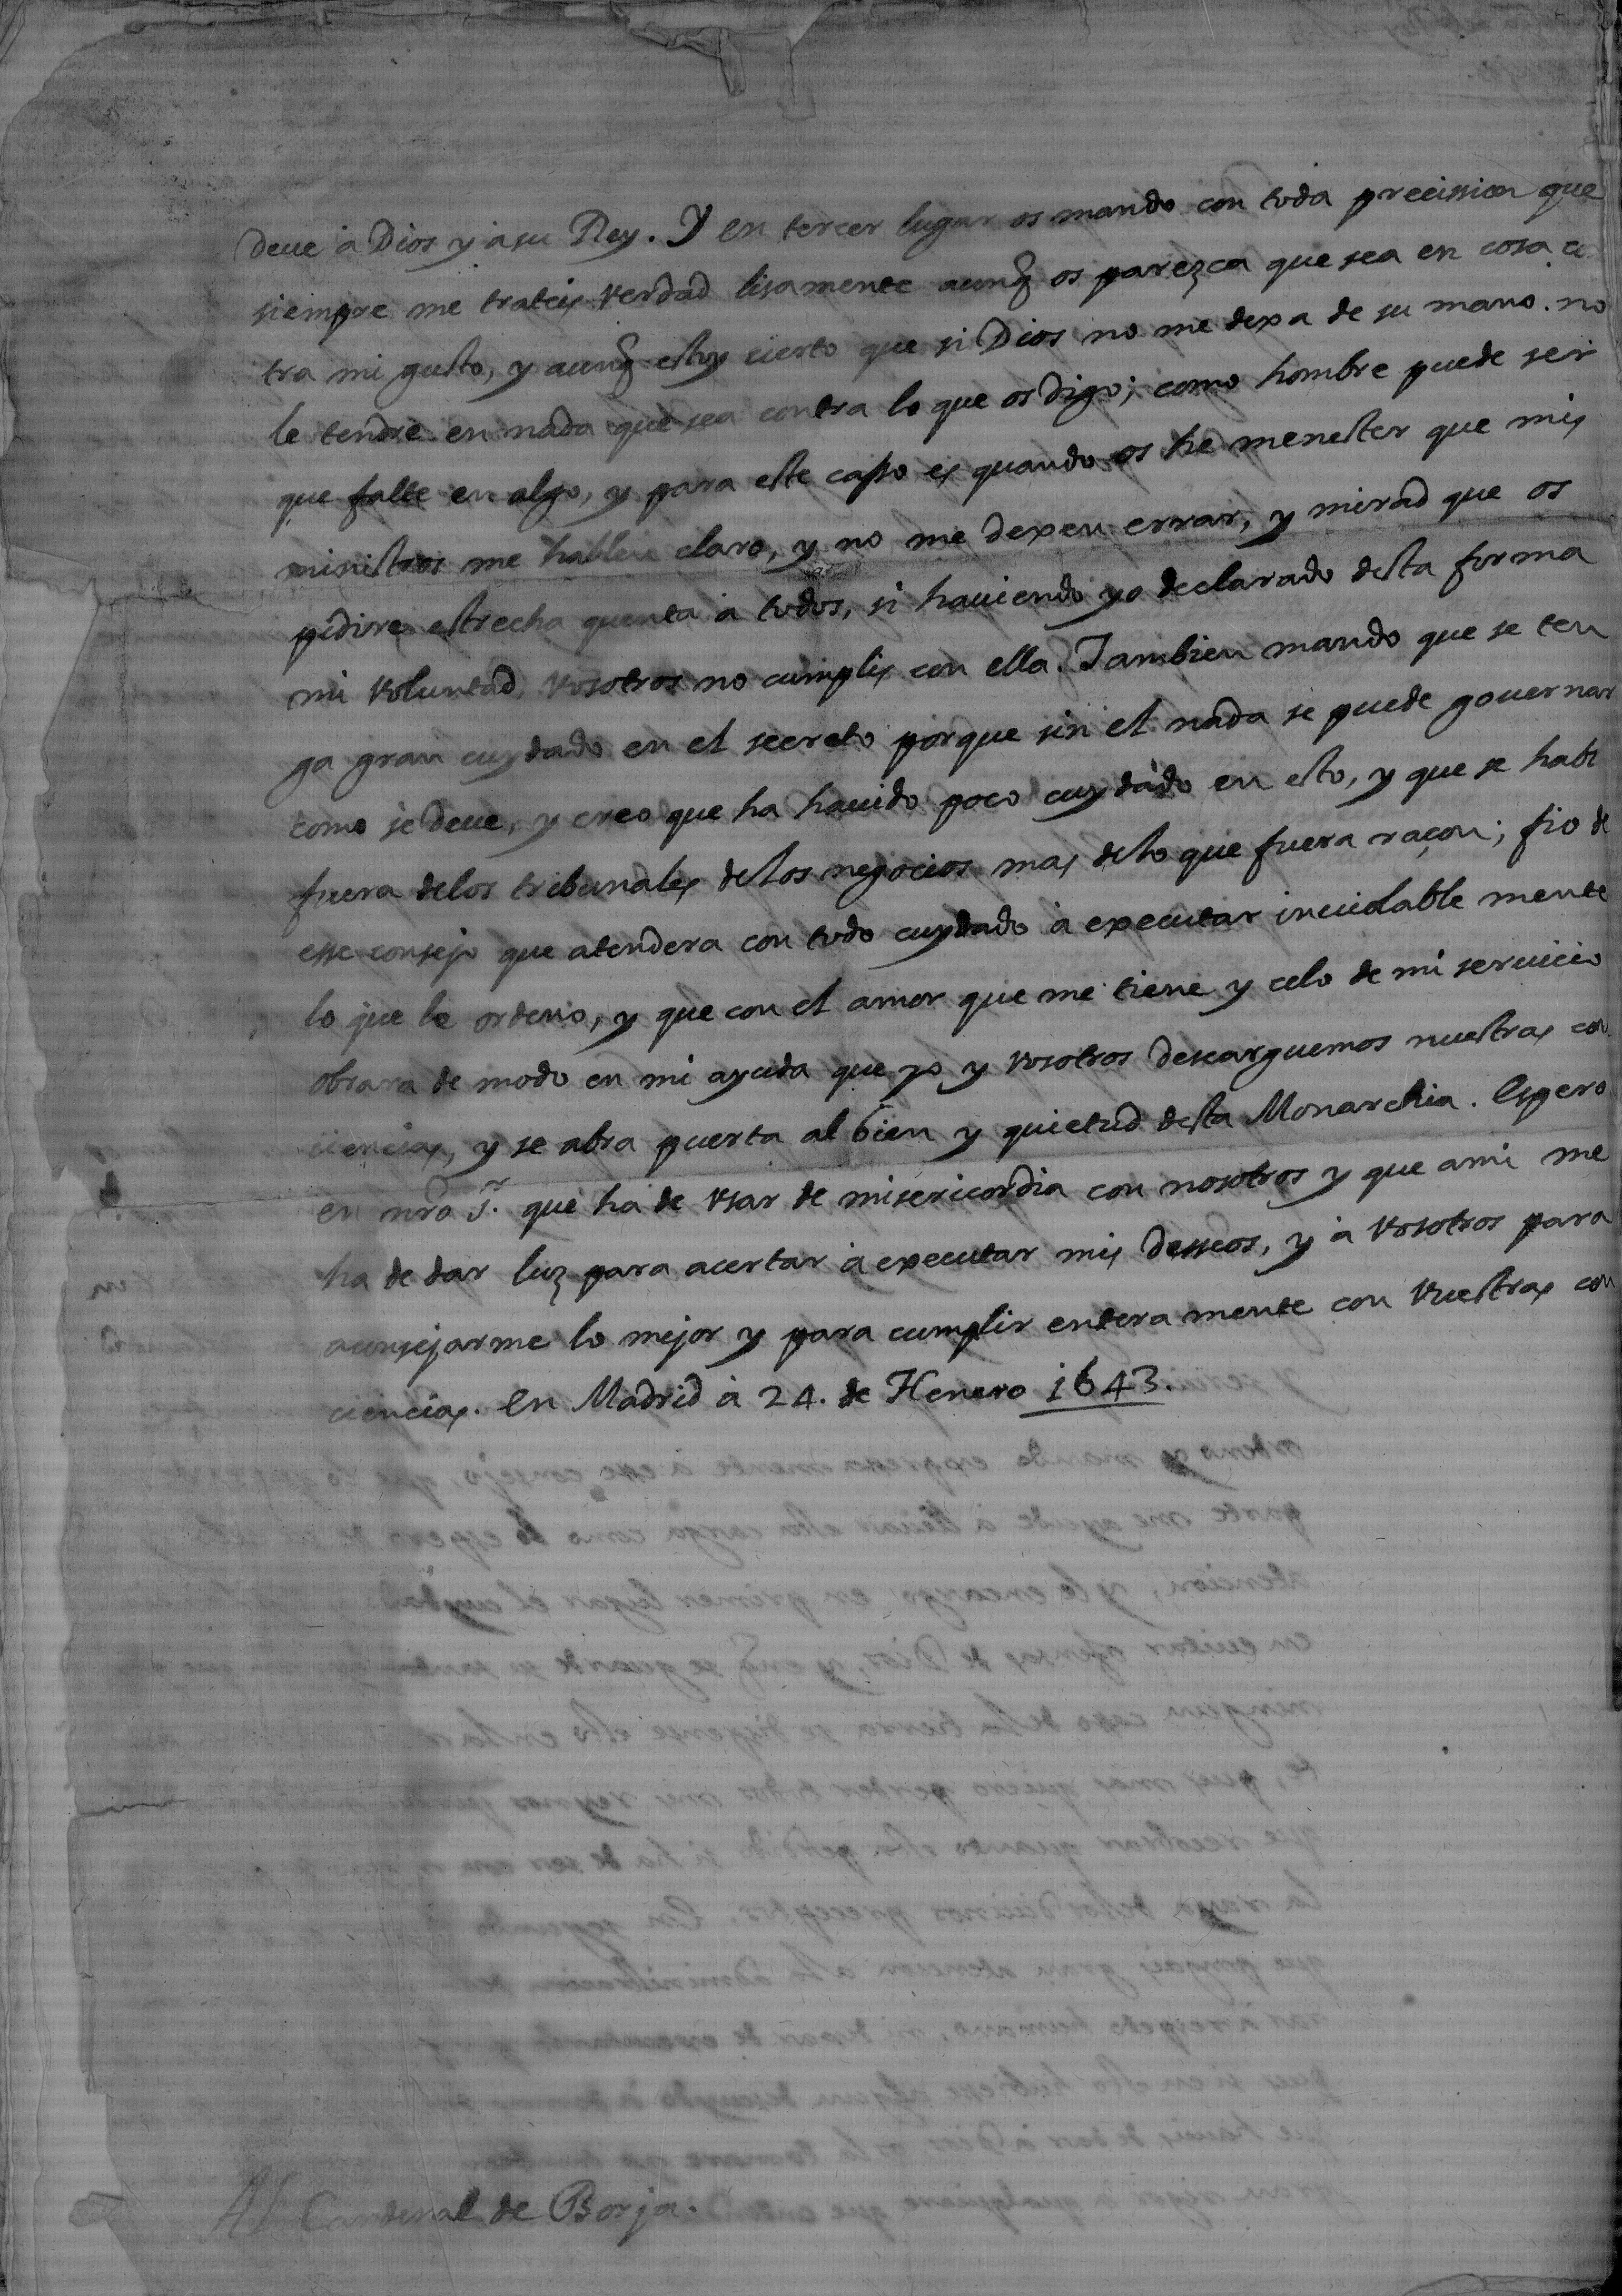 deue à Dios y à su Rey. Y en tercer lugar os mando con toda precission que
siempre me trateis verdad lisamente aunq̃ os parezca que sea en cosa co
tra mi gusto, y aunq̃ estoy cierto que si Dios no me dexa de su mano. no
le tendre en nada que sea contra lo que os digo; como hombre puede ser
que falte en algo, y para este casso es quando os he menester que mis
ministros me hablen claro, y no me dexen errar, y mirad que os
pidire estrecha quenta à todos, si hauiendo yo declarado desta forma
mi voluntad, vosotros no cumplis con ella. Tambien mando que se ten
ga gran cuydado en el secreto porque sin el nada se puede gouernar
como se deue, y creo que ha hauido poco cuydado en esto, y que se habl
fuera delos tribunales delos negocios mas delo que fuera raçon; fio de
esse consejo que atendera con todo cuydado à executar inuiolable mente
lo que le ordeno, y que con el amor que me tiene y celo de mi seruicio
obrara de modo en mi ayuda que yo y vosotros descarguemos nuestras con
ciencias, y se abra puerta al bien y quietud desta Monarchia. Espero
en nr̃o S.r que ha de vsar de misericordia con nosotros y que ami me
ha de dar luz para acertar à executar mis desseos, y à vosotros para
aconsejarme lo mejor y para cumplir entera mente con vuestras con
ciencias. En Madrid à 24. de Henero 1643.
Al Cardenal de Borja.